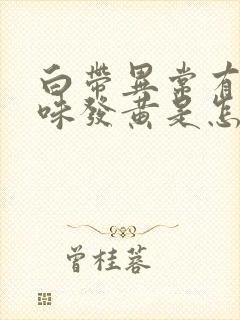 白帶異常有
味發黃是怎
曾桂蓉